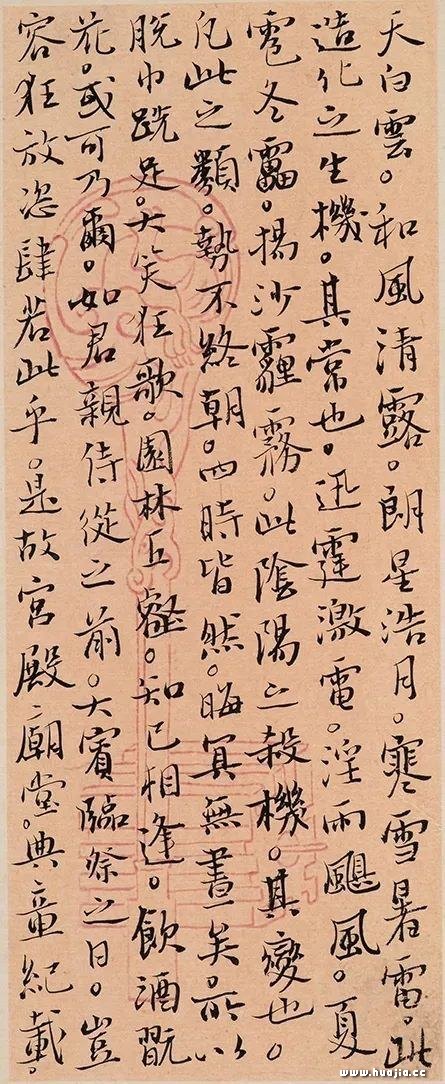 天白雲。和風清露。朗星浩月。寒雪暑雷。此
造化之生機。其常也。迅霆激電。淫雨颶風。夏
雹冬靁。揚沙霾霧。此陰陽之殺機。其變也。
凡此之類。勢不終朝。四時皆然。晦冥無晝矣。所以
脫巾跣足。大笑狂歌。園林丘壑。知己相逢。飲酒翫
花。或可乃爾。如君親侍從之前。大賓臨祭之日。豈
容狂放恣肆若此乎。是故宮殿廟堂。典章紀載。
www.huajia.cc